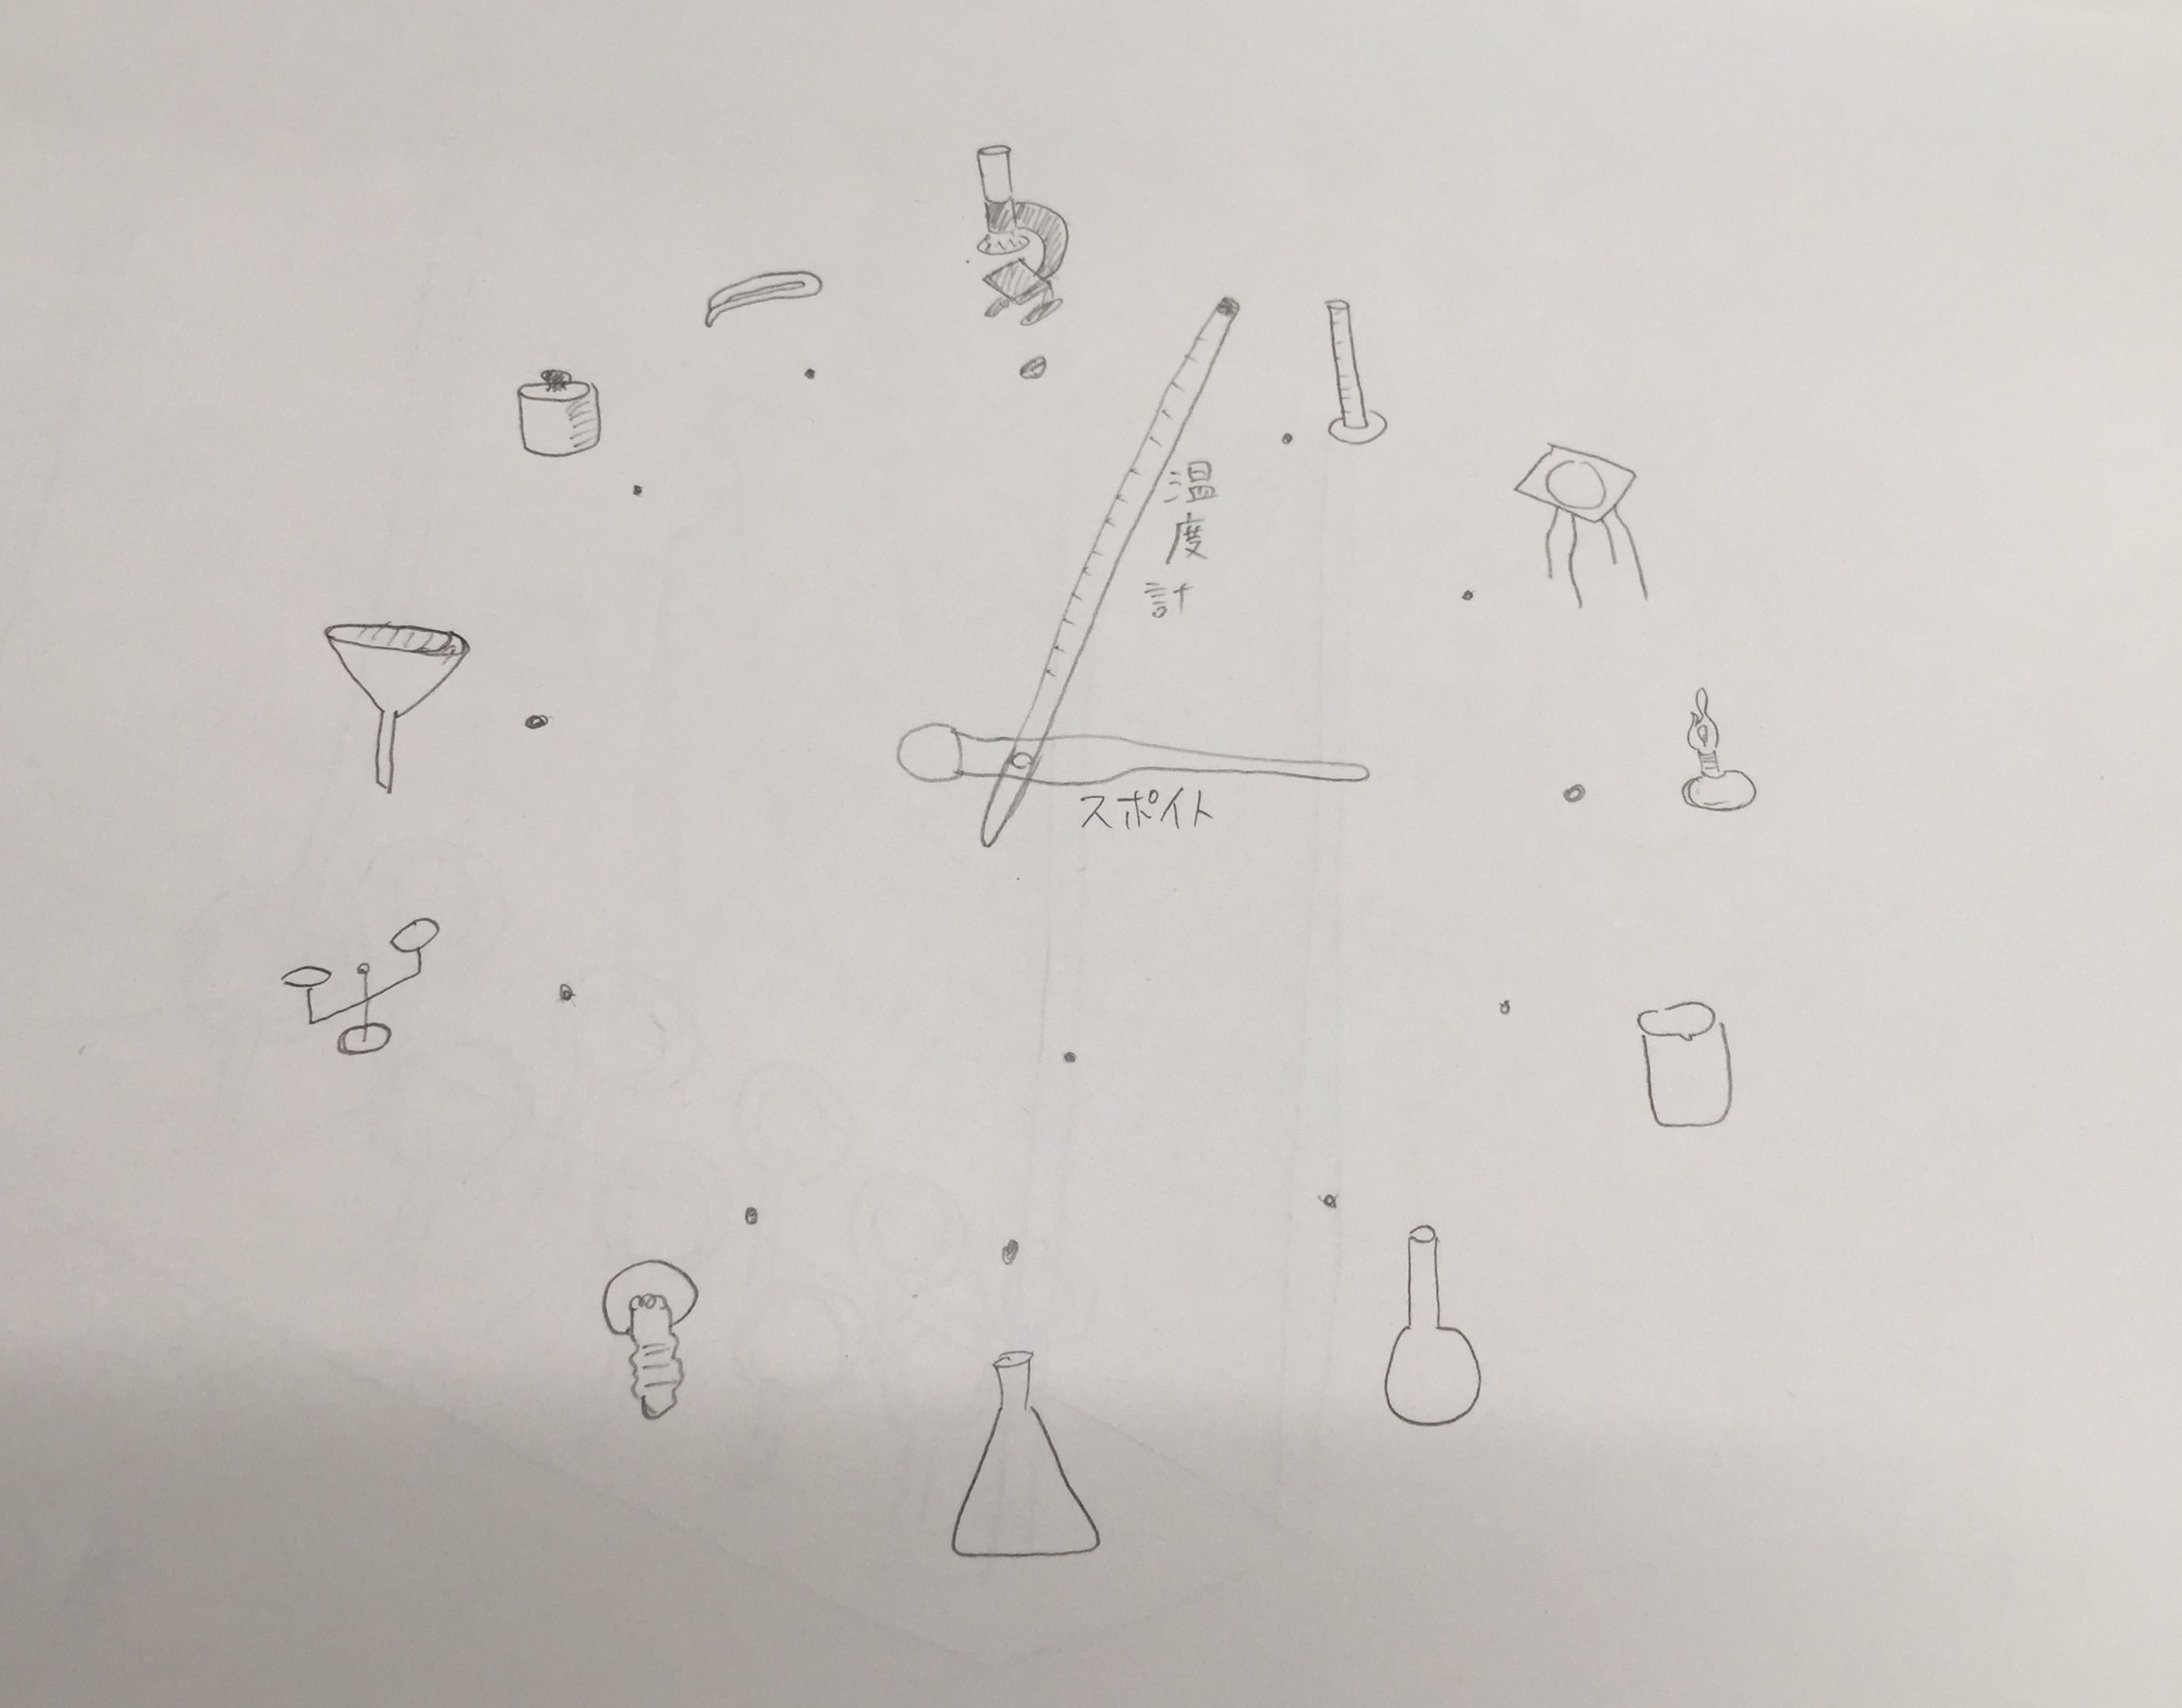 温度計
スポイト